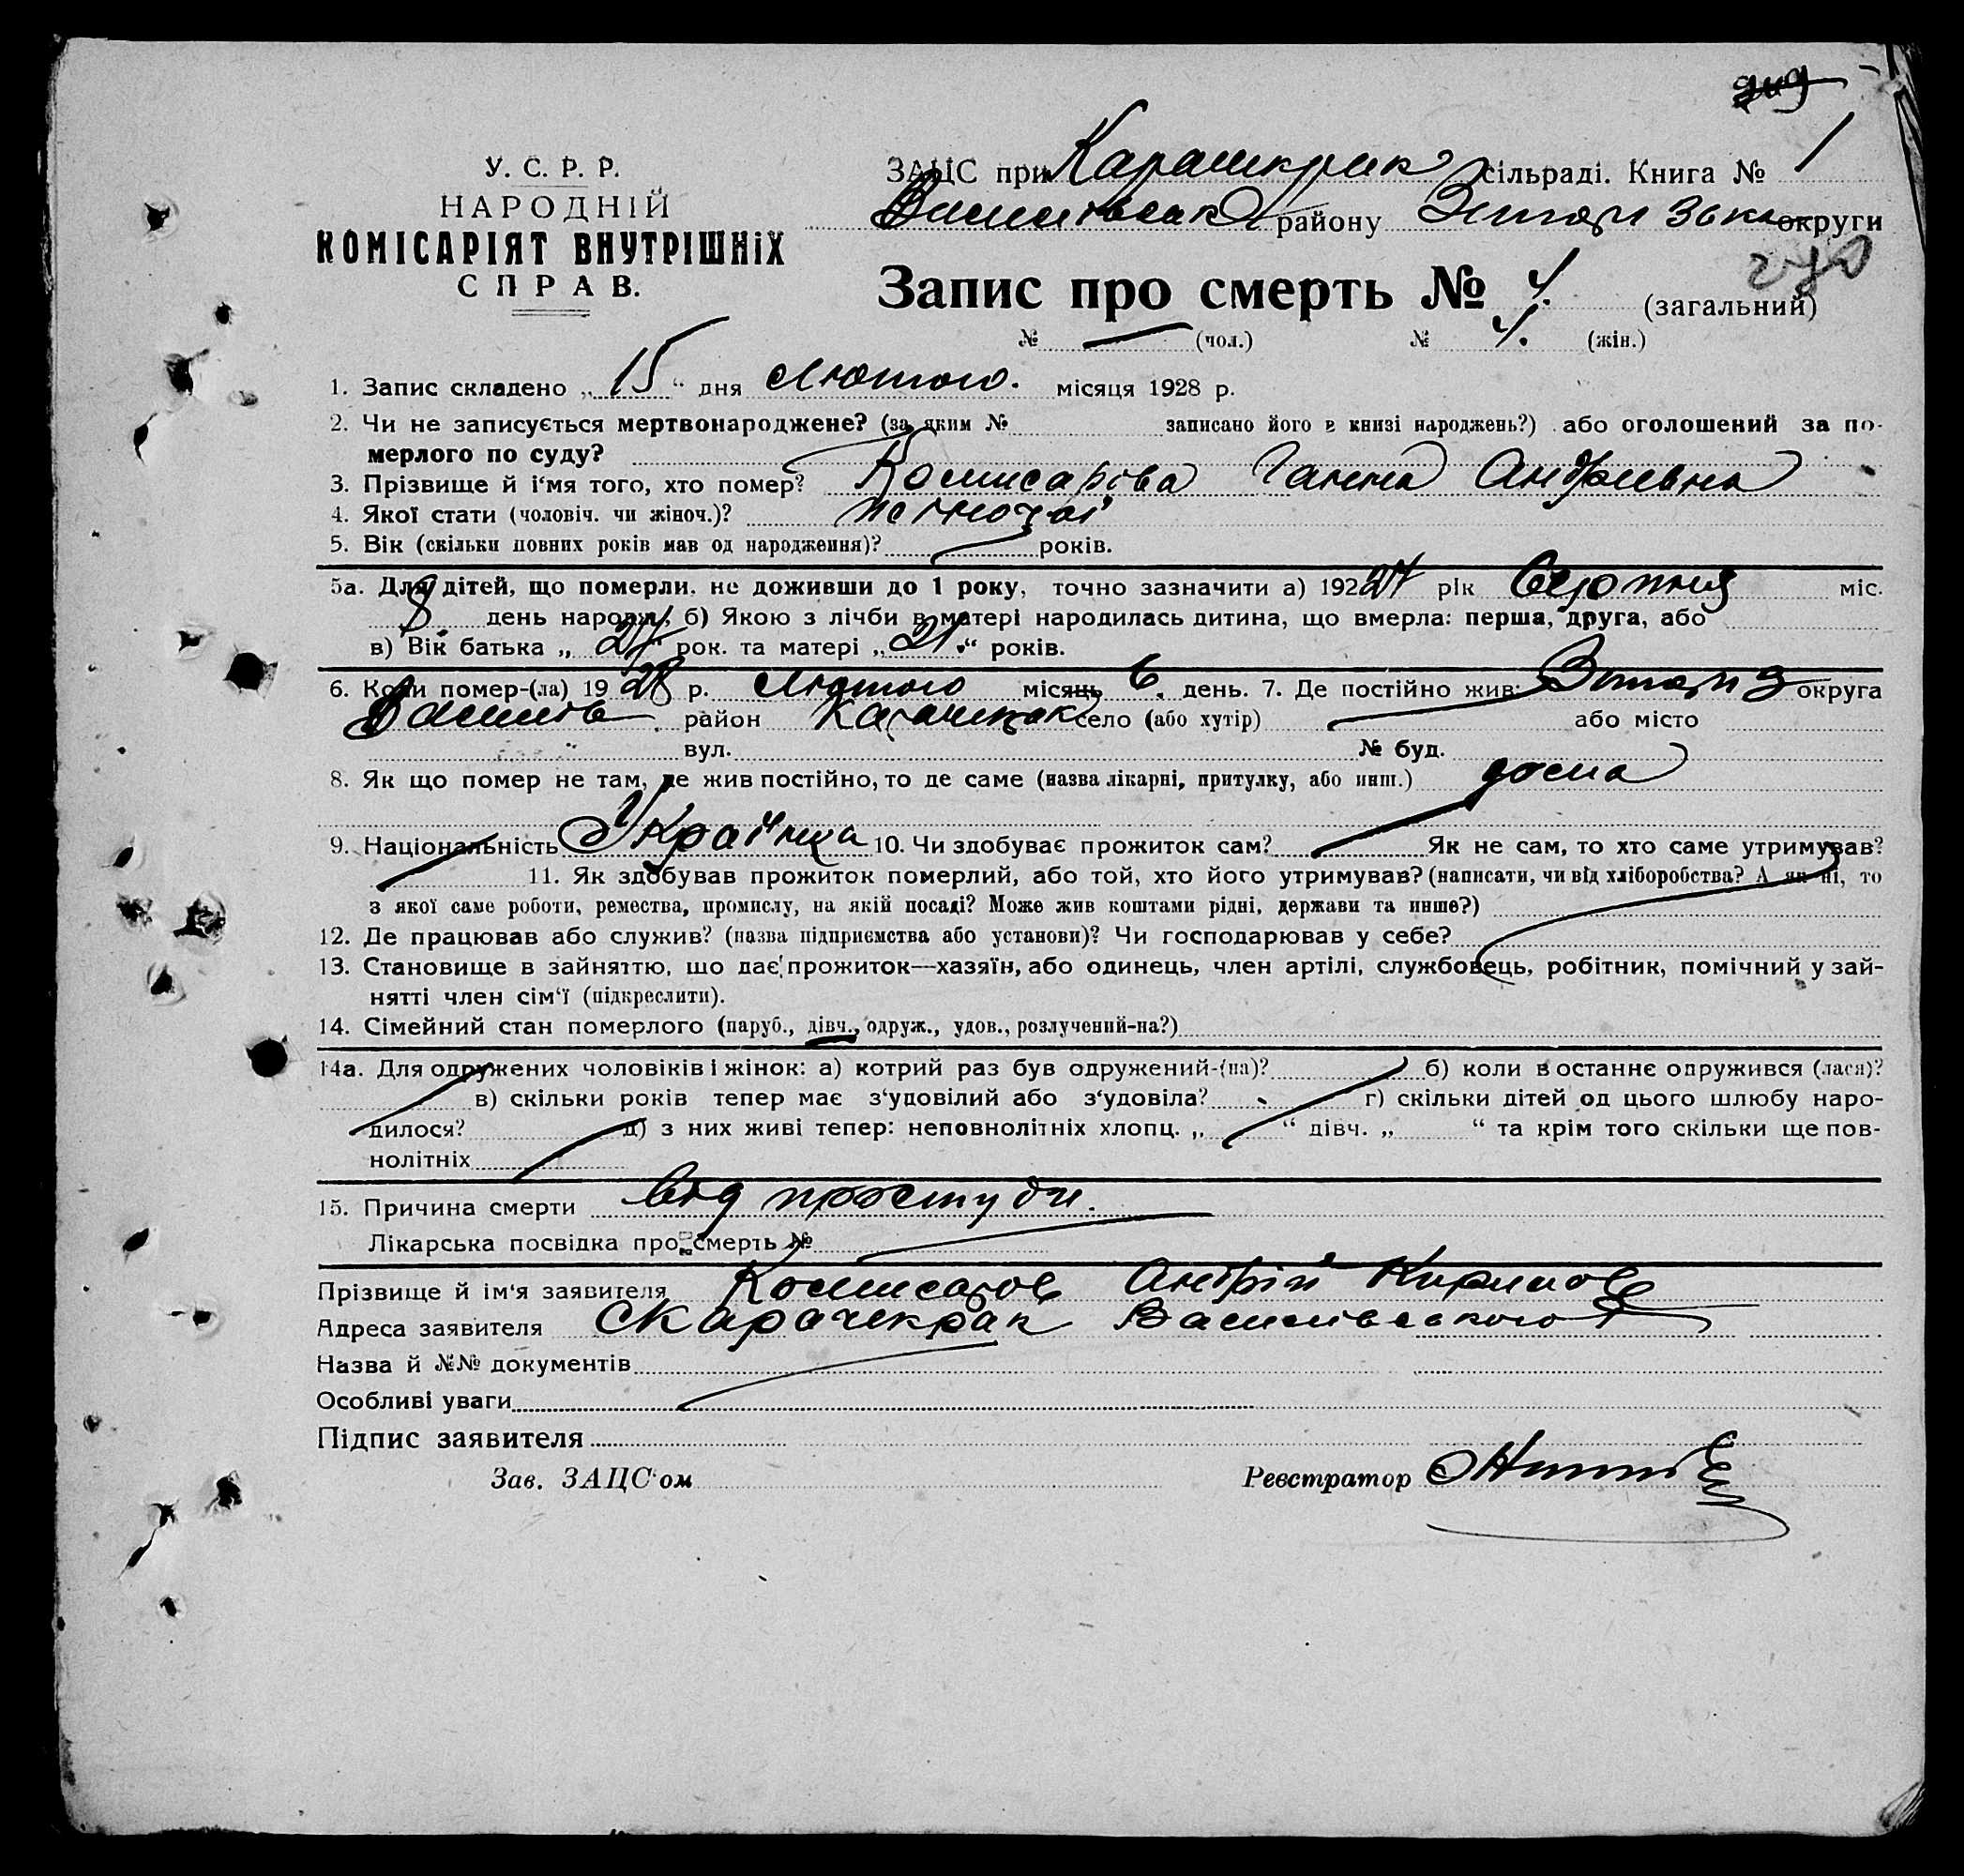 У. С. Р. Р.
НАРОДНІЙ
КОМІСАРІЯТ ВНУТРІШНІХ
СПРАВ.
ЗАЦС при сільраді. Книга № 1
району округи
Запис про смерть № 4. (загальний)
№ — (чол.) № 4. (жін.)
1. Запис складено „ 15 “ дня Лютого. місяця 1928 р.
2. Чи не записується мертвонароджене? (за яким № записано його в книзі народжень?) або оголошений за по-
мерлого по суду?
3. Прізвище й і‘мя того, хто помер? Комисарова Ганна Андриевна
4. Якої стати (чоловіч. чи жіноч.)? жіночоі
5. Вік (скільки повних років мав од народження)? років.
5а. Для дітей, що померли, не доживши до 1 року, точно зазначити а) 192 27 рік Серпня міс.
8. день народж., б) Якою з лічби в матері народилась дитина, що вмерла: перша, друга, або
в) Вік батька „ “ рок. та матері „ 21. “ років.
6. Коли помер-(ла) 19 28 р. Лютого місяць 6. день. 7. Де постійно жив: округа
район село (або хутір) або місто
вул. № буд.
8. Як що помер не там, де жив постійно, то де саме (назва лікарні, притулку, або инш.) дома
9. Національність Українка 10. Чи здобуває прожиток сам? Як не сам, то хто саме утримував?
11. Як здобував прожиток померлий, або той, хто його утримував? (написати, чи від хліборобства? А як ні, то
з якої саме роботи, ремества, промислу, на якій посаді? Може жив коштами рідні, держави та инше?)
12. Де працював або служив? (назва підприємства або установи)? Чи господарював у себе?
13. Становище в зайняттю, що дає прожиток—хазяїн, або одинець, член артілі, службовець, робітник, помічний у зай-
нятті член сім‘ї (підкреслити).
14. Сімейний стан померлого (паруб., дівч., одруж., удов., розлучений-на?)
14а. Для одружених чоловіків і жінок: а) котрий раз був одружений-(на)? б) коли в останнє одружився (лася)?
в) скільки років тепер має з‘удовілий або з‘удовіла? г) скільки дітей од цього шлюбу наро-
дилося? д) з них живі тепер: неповнолітніх хлопц. „ “ дівч. „ “ та крім того скільки ще пов-
нолітніх
15. Причина смерти від простуди.
Лікарська посвідка про смерть №
Прізвище й ім‘я заявителя Комисаров Андрій
Адреса заявителя Василівського
Назва й №№ документів
Особливі уваги
Підпис заявителя
Зав. ЗАЦС‘ом Реєстратор